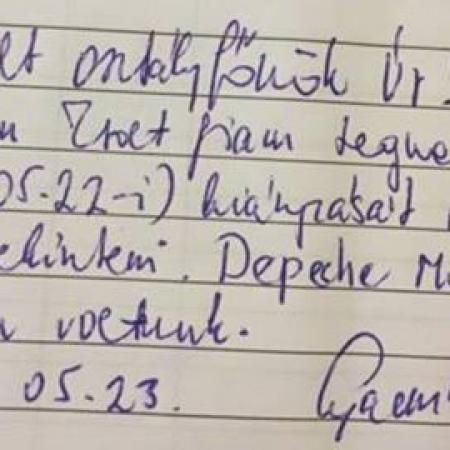 lt osztályfőnök Úr
Zsolt fiam tegna
05.22-i) hiányzásait
ekinteni. Depeche M
voltunk.
05.23.